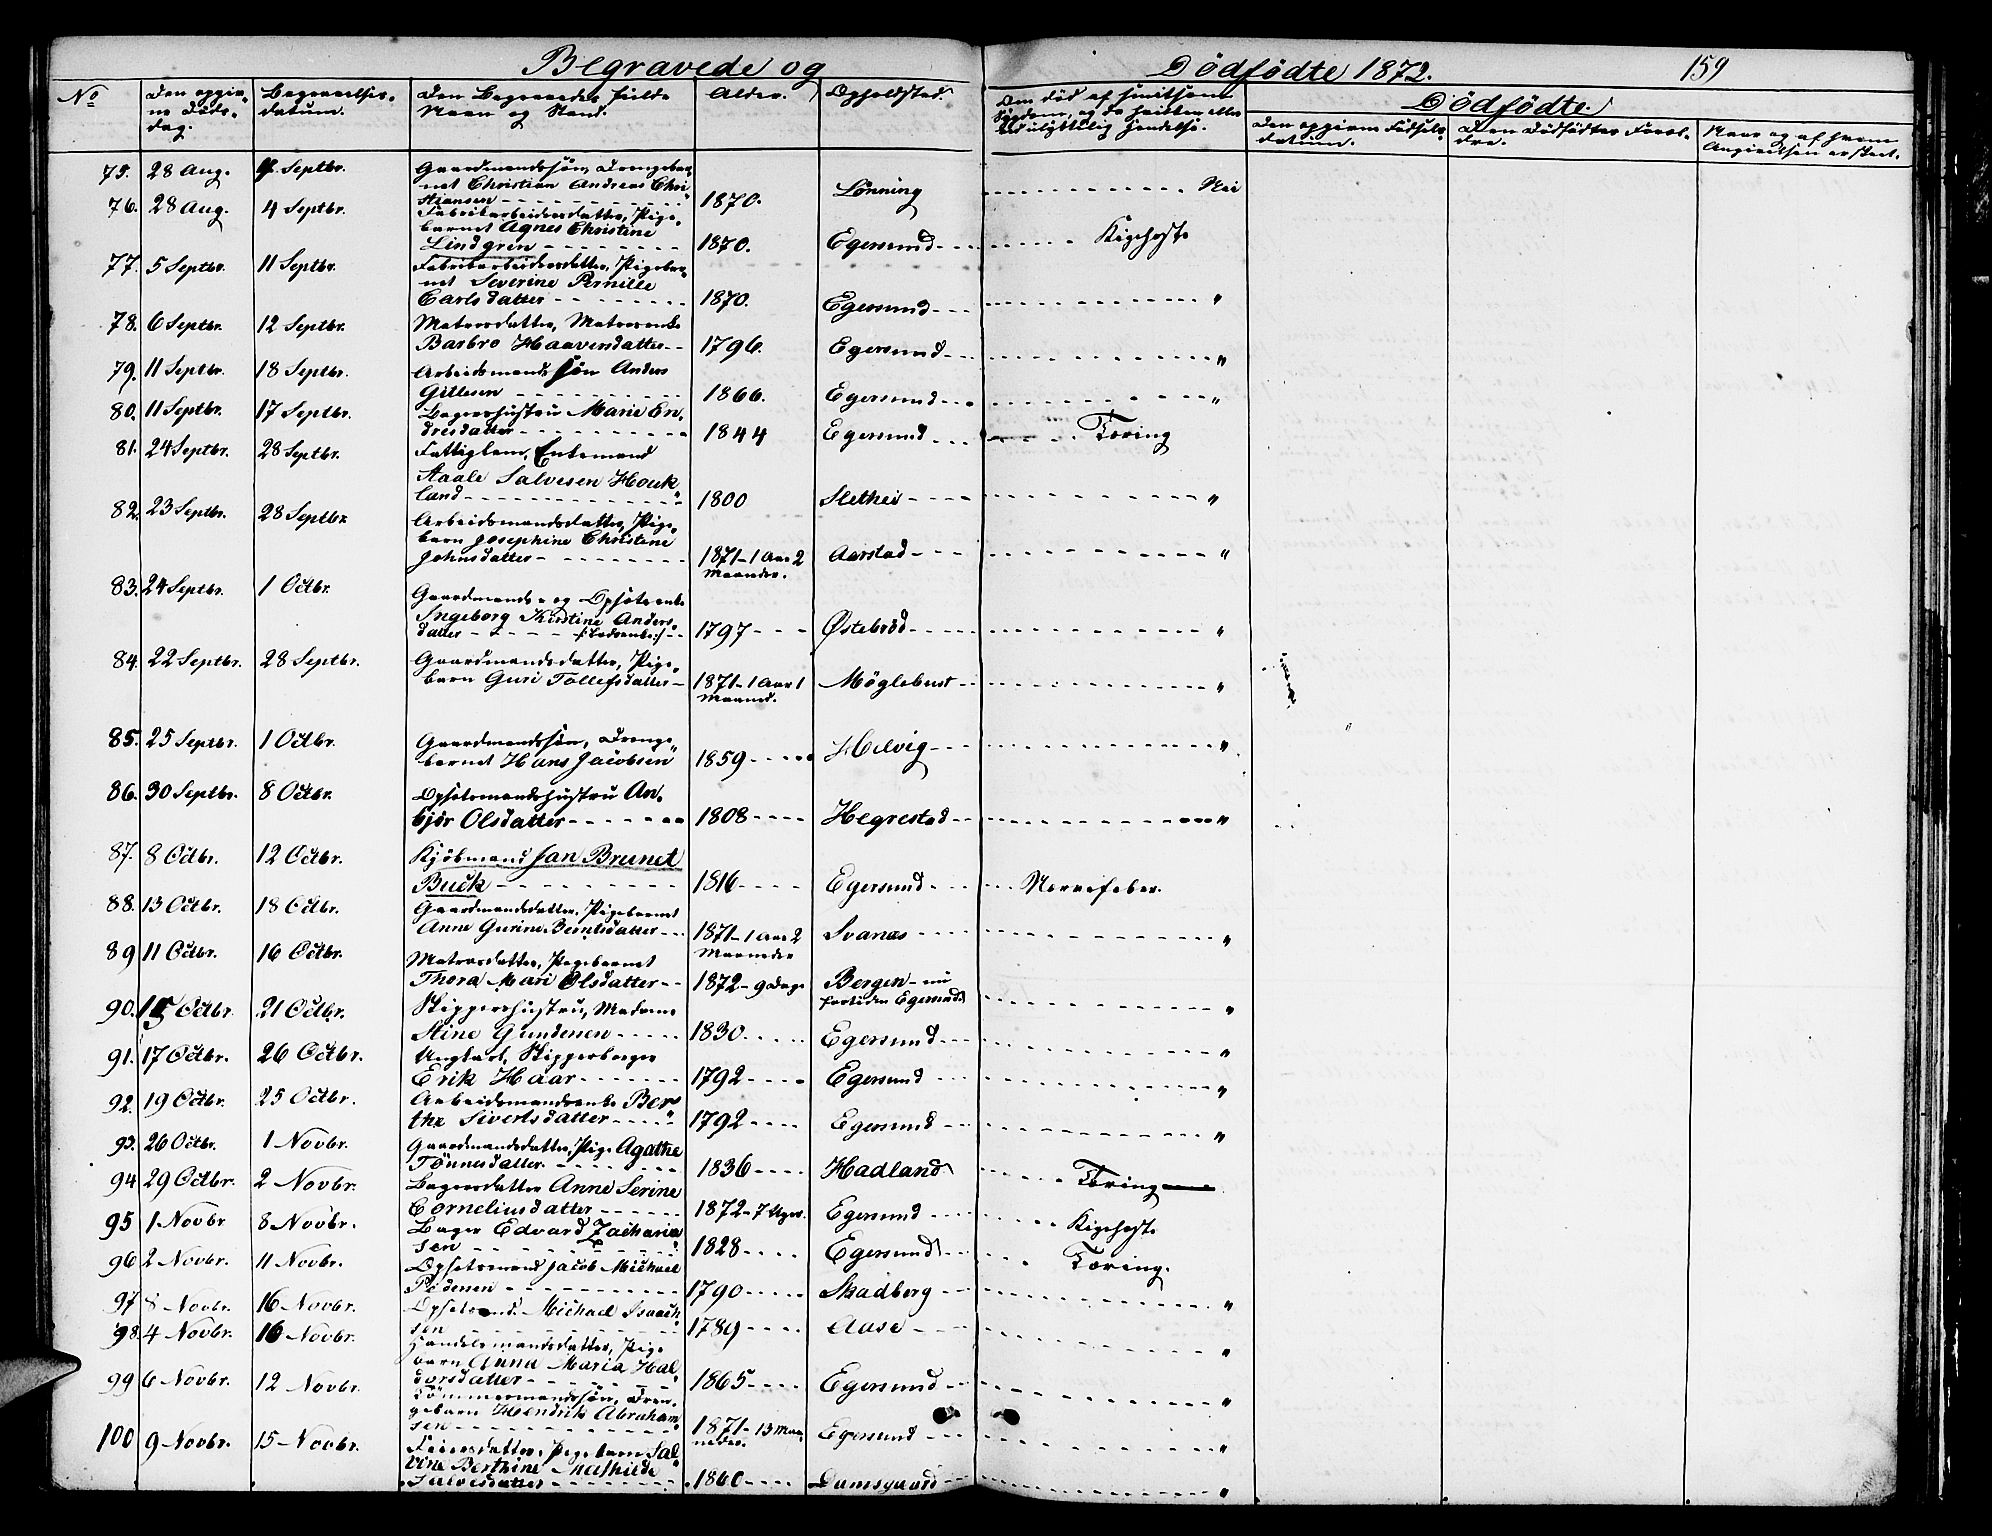 Begravede og
Dødfødte 1872. 159
No
Den opgivne Døds-dag.
Begravelses-datum.
Den Begravedes fulde Navn og Stand.
Alder.
Opholdsted.
Om død af smitsom Sygdom, og da hvilken eller ved ulykkelig Hendelse.
Dødfødte.
Den opgivne Fødsels-datum.
Den Dødfødtes Foræl-dre.
Naar og af hvem Angivelsen er skeet.
75. 28 Aug. 4 Septbr. Gaardmandssøn, Drengebar-
net Christian Andreas Chri-
stiansen 1870. Lønning Nei
76. 28 Aug. 4 Septbr. Fabrikarbeidersdatter, Pige-
barnet Agnes Christine
Lindgren 1870. Egersund Kighoste
77. 5 Septbr. 11 Septbr. Fabrikarbeidersdatter, Pigebar-
net Severine Pernille
Carlsdatter 1870. Egersund "
78. 6 Septbr. 12 Septbr. Matrosdatter, Matrosenke
Barbro Haaversdatter 1796. Egersund "
79. 11 Septbr. 18 Septbr. Arbeidsmands søn Anders
Gitlesen 1866. Egersund "
80. 11 Septbr. 17 Septbr. Bagershustru Marie En-
dresdatter 1844 Egersund Tæring
81. 24 Septbr. 28 Septbr. Fattiglem, Enkemand
Aaale Salvesen Houk
land 1800 Slethei "
82. 23 Septbr. 28 Septbr. Arbeidsmandsdatter, Pige-
barn Josephine Christine
Johnsdatter 1871-1 Aar 2 Maaneder. Aarstad "
83. 24 Septbr. 1 Octbr. Gaardmands- og Opsidsenke
Ingeborg Kirstine Anders-
datter 1797 Østebrød "
84. 22 Septbr. 28 Septbr. Gaardmandsdatter, Pige-
barn Guri Tollefsdatter 1871-1 Aar 1 Maaned. Møglebust "
85. 25 Septbr. 1 Octbr. Gaardmandssøn, Drenge-
barnet Hans Jacobsen 1859 Helvig "
86. 30 Septbr. 8 Octbr. Opsidsmandshustru An-
bjør Olsdatter 1808 Hegrestad "
87. 8 Octbr. 12 Octbr. Kjøbmand Jan Brunet
Buck 1816 Egersund Nervefeber.
88. 13 Octbr. 18 Octbr. Gaardmandsdatter, Pigebarnet
Anne Gurine Berntsdatter 1871-1 Aar 2 Maaneder Svanæs "
89 11 Octbr. 16 Octbr. Matrosdatter, Pigebarnet
Thora Mari Olsdatter 1872-9 Dage Bergen - nu
fortiden Egersund "
90. 15 Octbr. 21 Octbr. Skippershustru, Madame
Stine Gundersen 1830 Egersund "
91. 17 Octbr. 26 Octbr. Ungkarl, Skipperborger
Erik Haar 1792 Egersund "
92. 19 Octbr. 25 Octbr. Arbeidsmandsenke Ber-
the Sivertsdatter 1792 Egersund "
93. 26 Octbr. 1 Novbr. Gaardmandsdatter, Pige Agathe
Tønnesdatter 1836 Hadland Tæring
94 29 Octbr. 2 Novbr. Bagersdatter Anne Serine
Corneliusdatter 1872-7 Uger Egersund Kighoste
95 1 Novbr 8 Novbr. Bager Edvard Zacharia
sen 1828 Egersund Tæring.
96 2 Novbr. 11 Novbr. Opsidsmand Jacob Michael
Pedersen 1790 Skadberg "
97 8 Novbr. 16 Novbr. Opsidsmd. Michael Isaach
sen 1789 Aase "
98. 4 Novbr. 16 Novbr. Handelsmandsdatter, Pige
barn Anna Maria Hal-
dorsdatter 1865 Egersund "
99 6 Novbr. 12 Novbr. Tømmermandssøn, Dren-
gebarn Hendrik Abraham-
sen 1871-13 Maaneder. Egersund "
100 9 Novbr. 15 Novbr. Feiersdatter, Pigebarn Sal-
vine Berthine Mathilde
Salvesdatter 1860 Damsgaard "